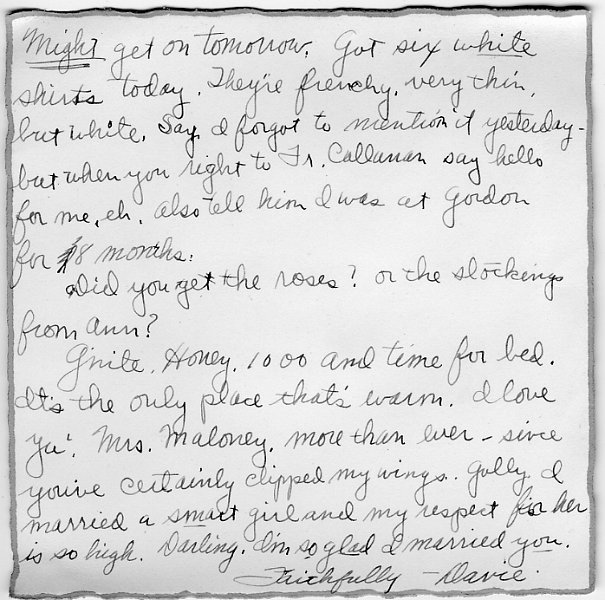 Might get on tomorrow. Got six white
shirts today. They're frenchy, very thin,
but white. Say, I forgot to mention it yesterday -
but when you right to Fr. Callanan say hello
for me, eh. also tell him I was at Gordon
for 8 months.
Did you get the roses? or the stockings
from Ann?
G'nite, Honey. 10 00 and time for bed.
It's the only place that's warm. I love
ya', Mrs. Maloney, more than ever - since
youve certainly clipped my wings. Golly, I
married a smart girl and my respect for her
is so high. Darling, I'm so glad I married you.
Faithfully - Davie.